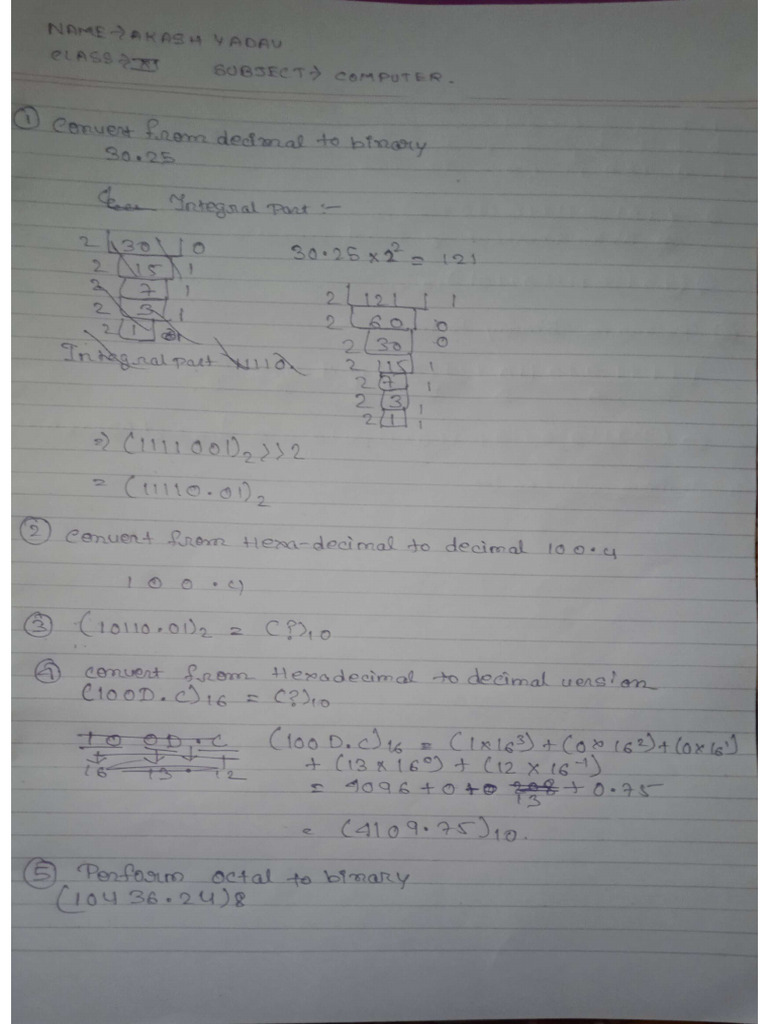 NAME→AKASH YADAV
CLASS→XI SUBJECT→ COMPUTER.
① Convert from decimal to binary
30.25
Integral Part :-
2 30 0
2 15 1
2 7 1
2 3 1
2 1
Integral part 11110
30.25 × 2² = 121
2 121 1
2 60 0
2 30 0
2 15 1
2 7 1
2 3 1
2 1 1
⇒ (1111001)₂ >> 2
= (11110.01)₂
② Convert from Hexa-decimal to decimal 100.4
1 0 0 . 4
③ (10110.01)₂ = (?)₁₀
④ Convert from Hexadecimal to decimal version
(100D.C)₁₆ = (?)₁₀
10 0D.C
16 13 . 12
(100D.C)₁₆ = (1×16³) + (0×16²) + (0×16¹)
+ (13×16⁰) + (12×16⁻¹)
= 4096 + 0 + 0 208 13 + 0.75
= (4109.75)₁₀.
⑤ Perform octal to binary
(10436.24)8